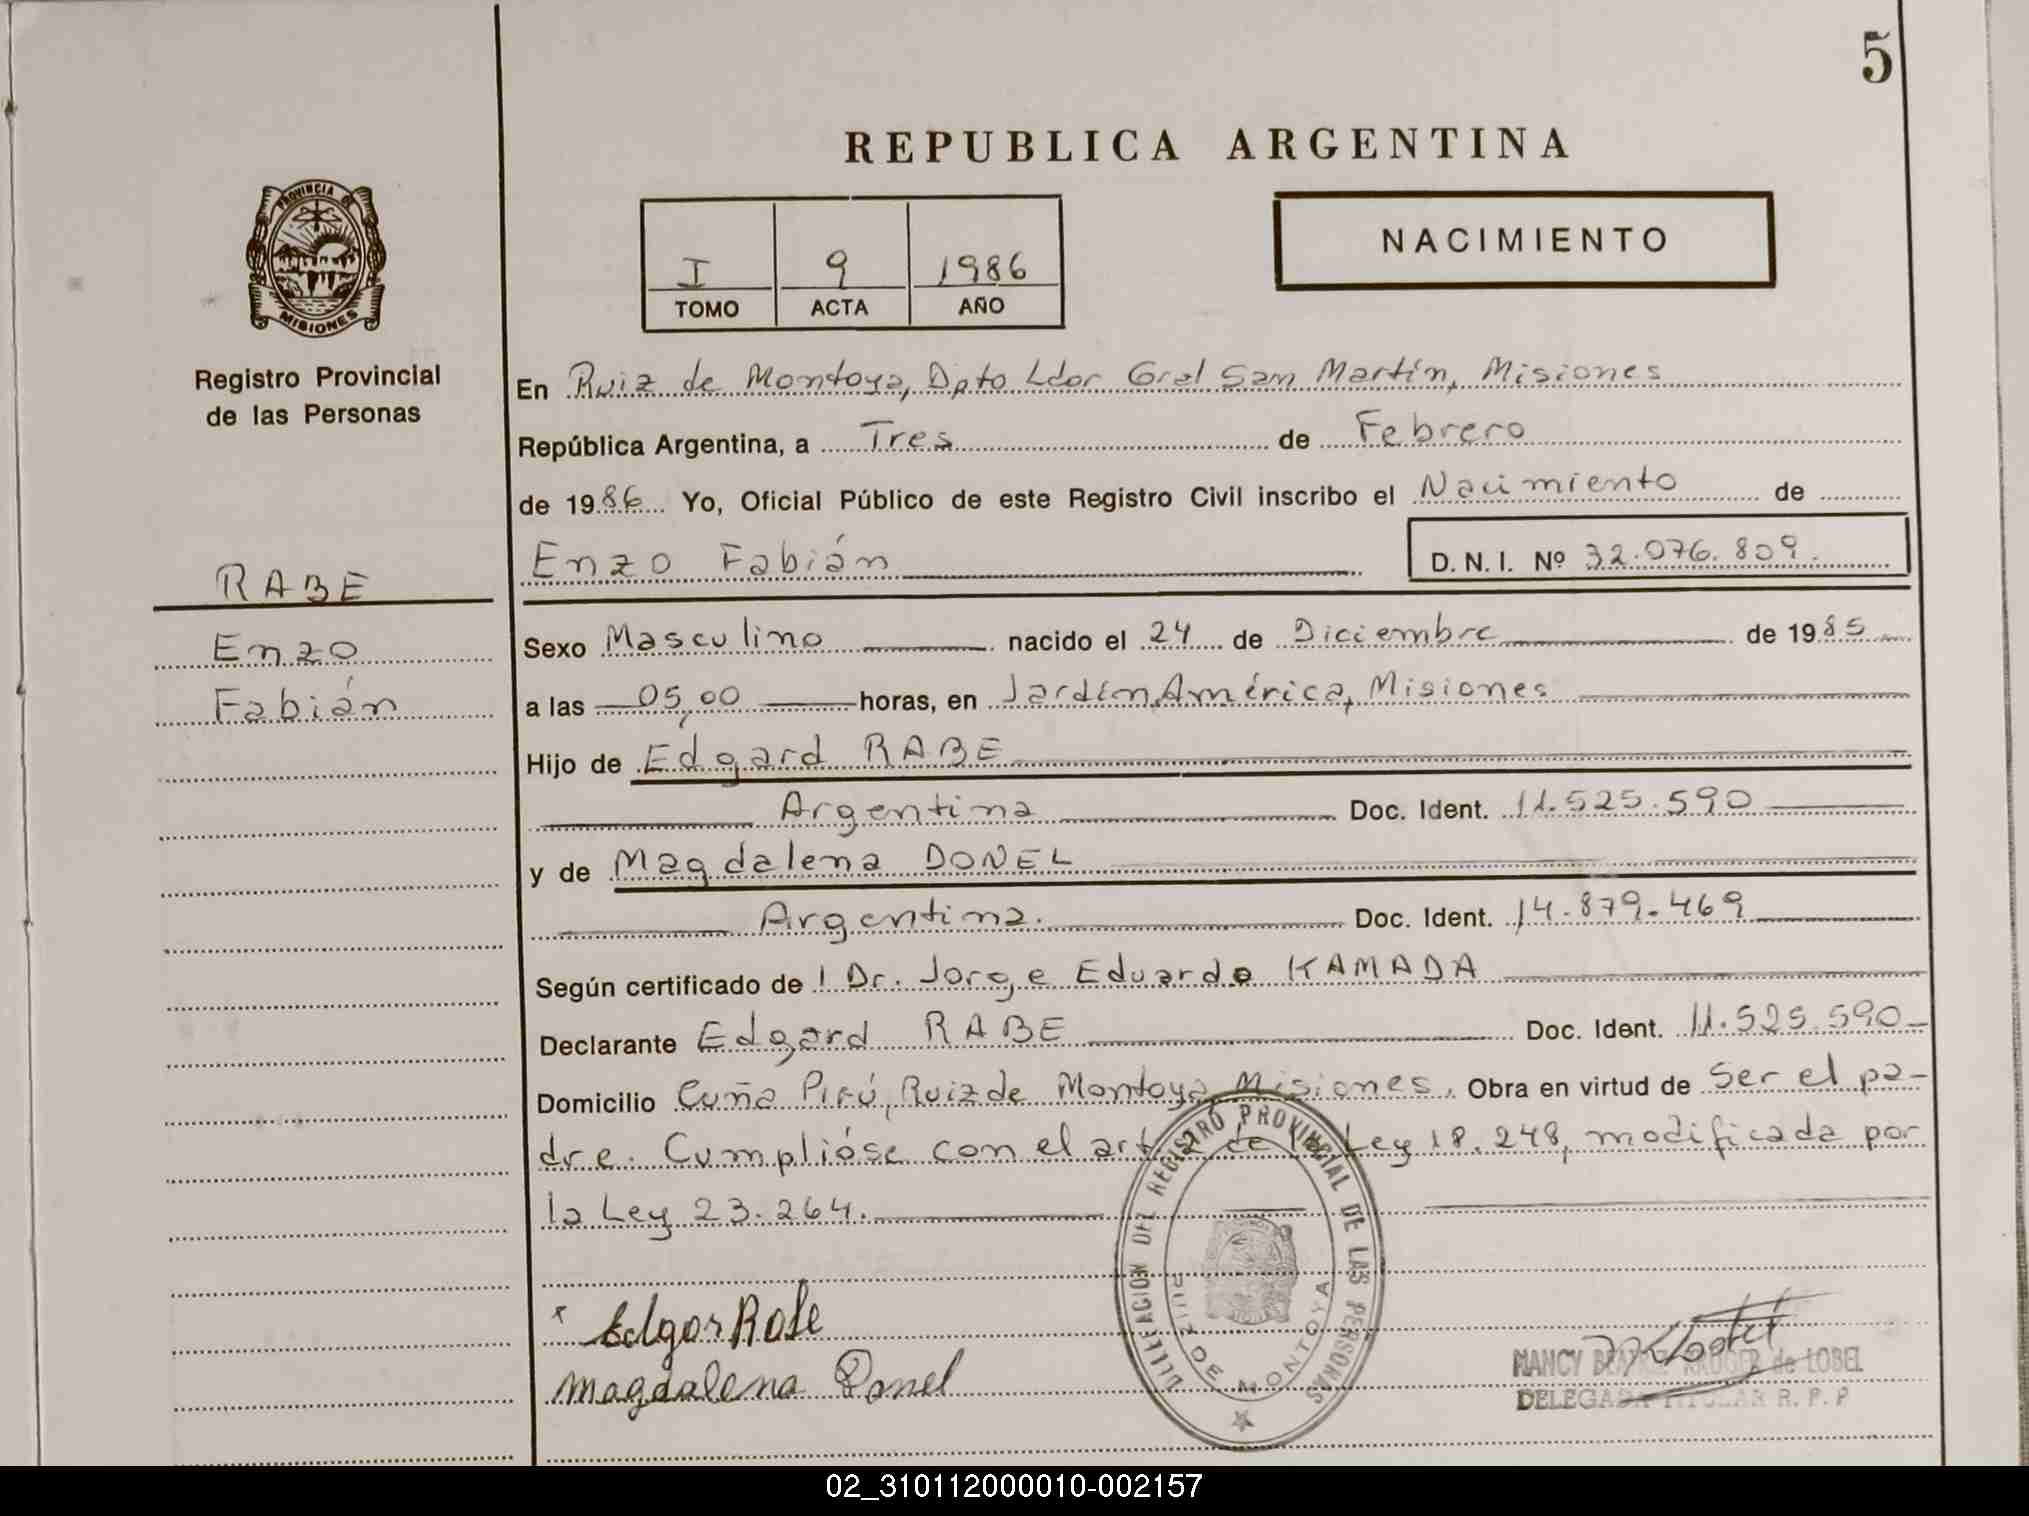 5
REPUBLICA ARGENTINA
PROVINCIA DE
MISIONES
Registro Provincial
de las Personas
I 9 1986
TOMO ACTA AÑO
NACIMIENTO
En Ruiz de Montoya, Dpto Ldor Gral San Martín, Misiones
República Argentina, a Tres de Febrero
de 1986 Yo, Oficial Público de este Registro Civil inscribo el Nacimiento de
Enzo Fabián D. N. I. Nº 32.076.809.
RABE
Enzo
Fabián
Sexo Masculino nacido el 24 de Diciembre de 1985
a las 05,00 horas, en Jardín América, Misiones
Hijo de Edgard RABE
Argentina Doc. Ident. 11.525.590
y de Magdalena DONEL
Argentina. Doc. Ident. 14.879.469
Según certificado de Dr. Jorge Eduardo KAMADA
Declarante Edgard RABE Doc. Ident. 11.525.590-
Domicilio Cuña Pirú, Ruiz de Montoya, Misiones. Obra en virtud de Ser el pa-
dre. Cumplióse con el art de Ley 18.248, modificada por
la Ley 23.264.
DELEGACION DEL REGISTRO PROVINCIAL DE LAS PERSONAS
RUIZ DE MONTOYA
Edgar Rabe
Magdalena Donel
NANCY BEATRIZ KRUGER de LOBEL
DELEGADA TITULAR R. P. P
02_310112000010-002157